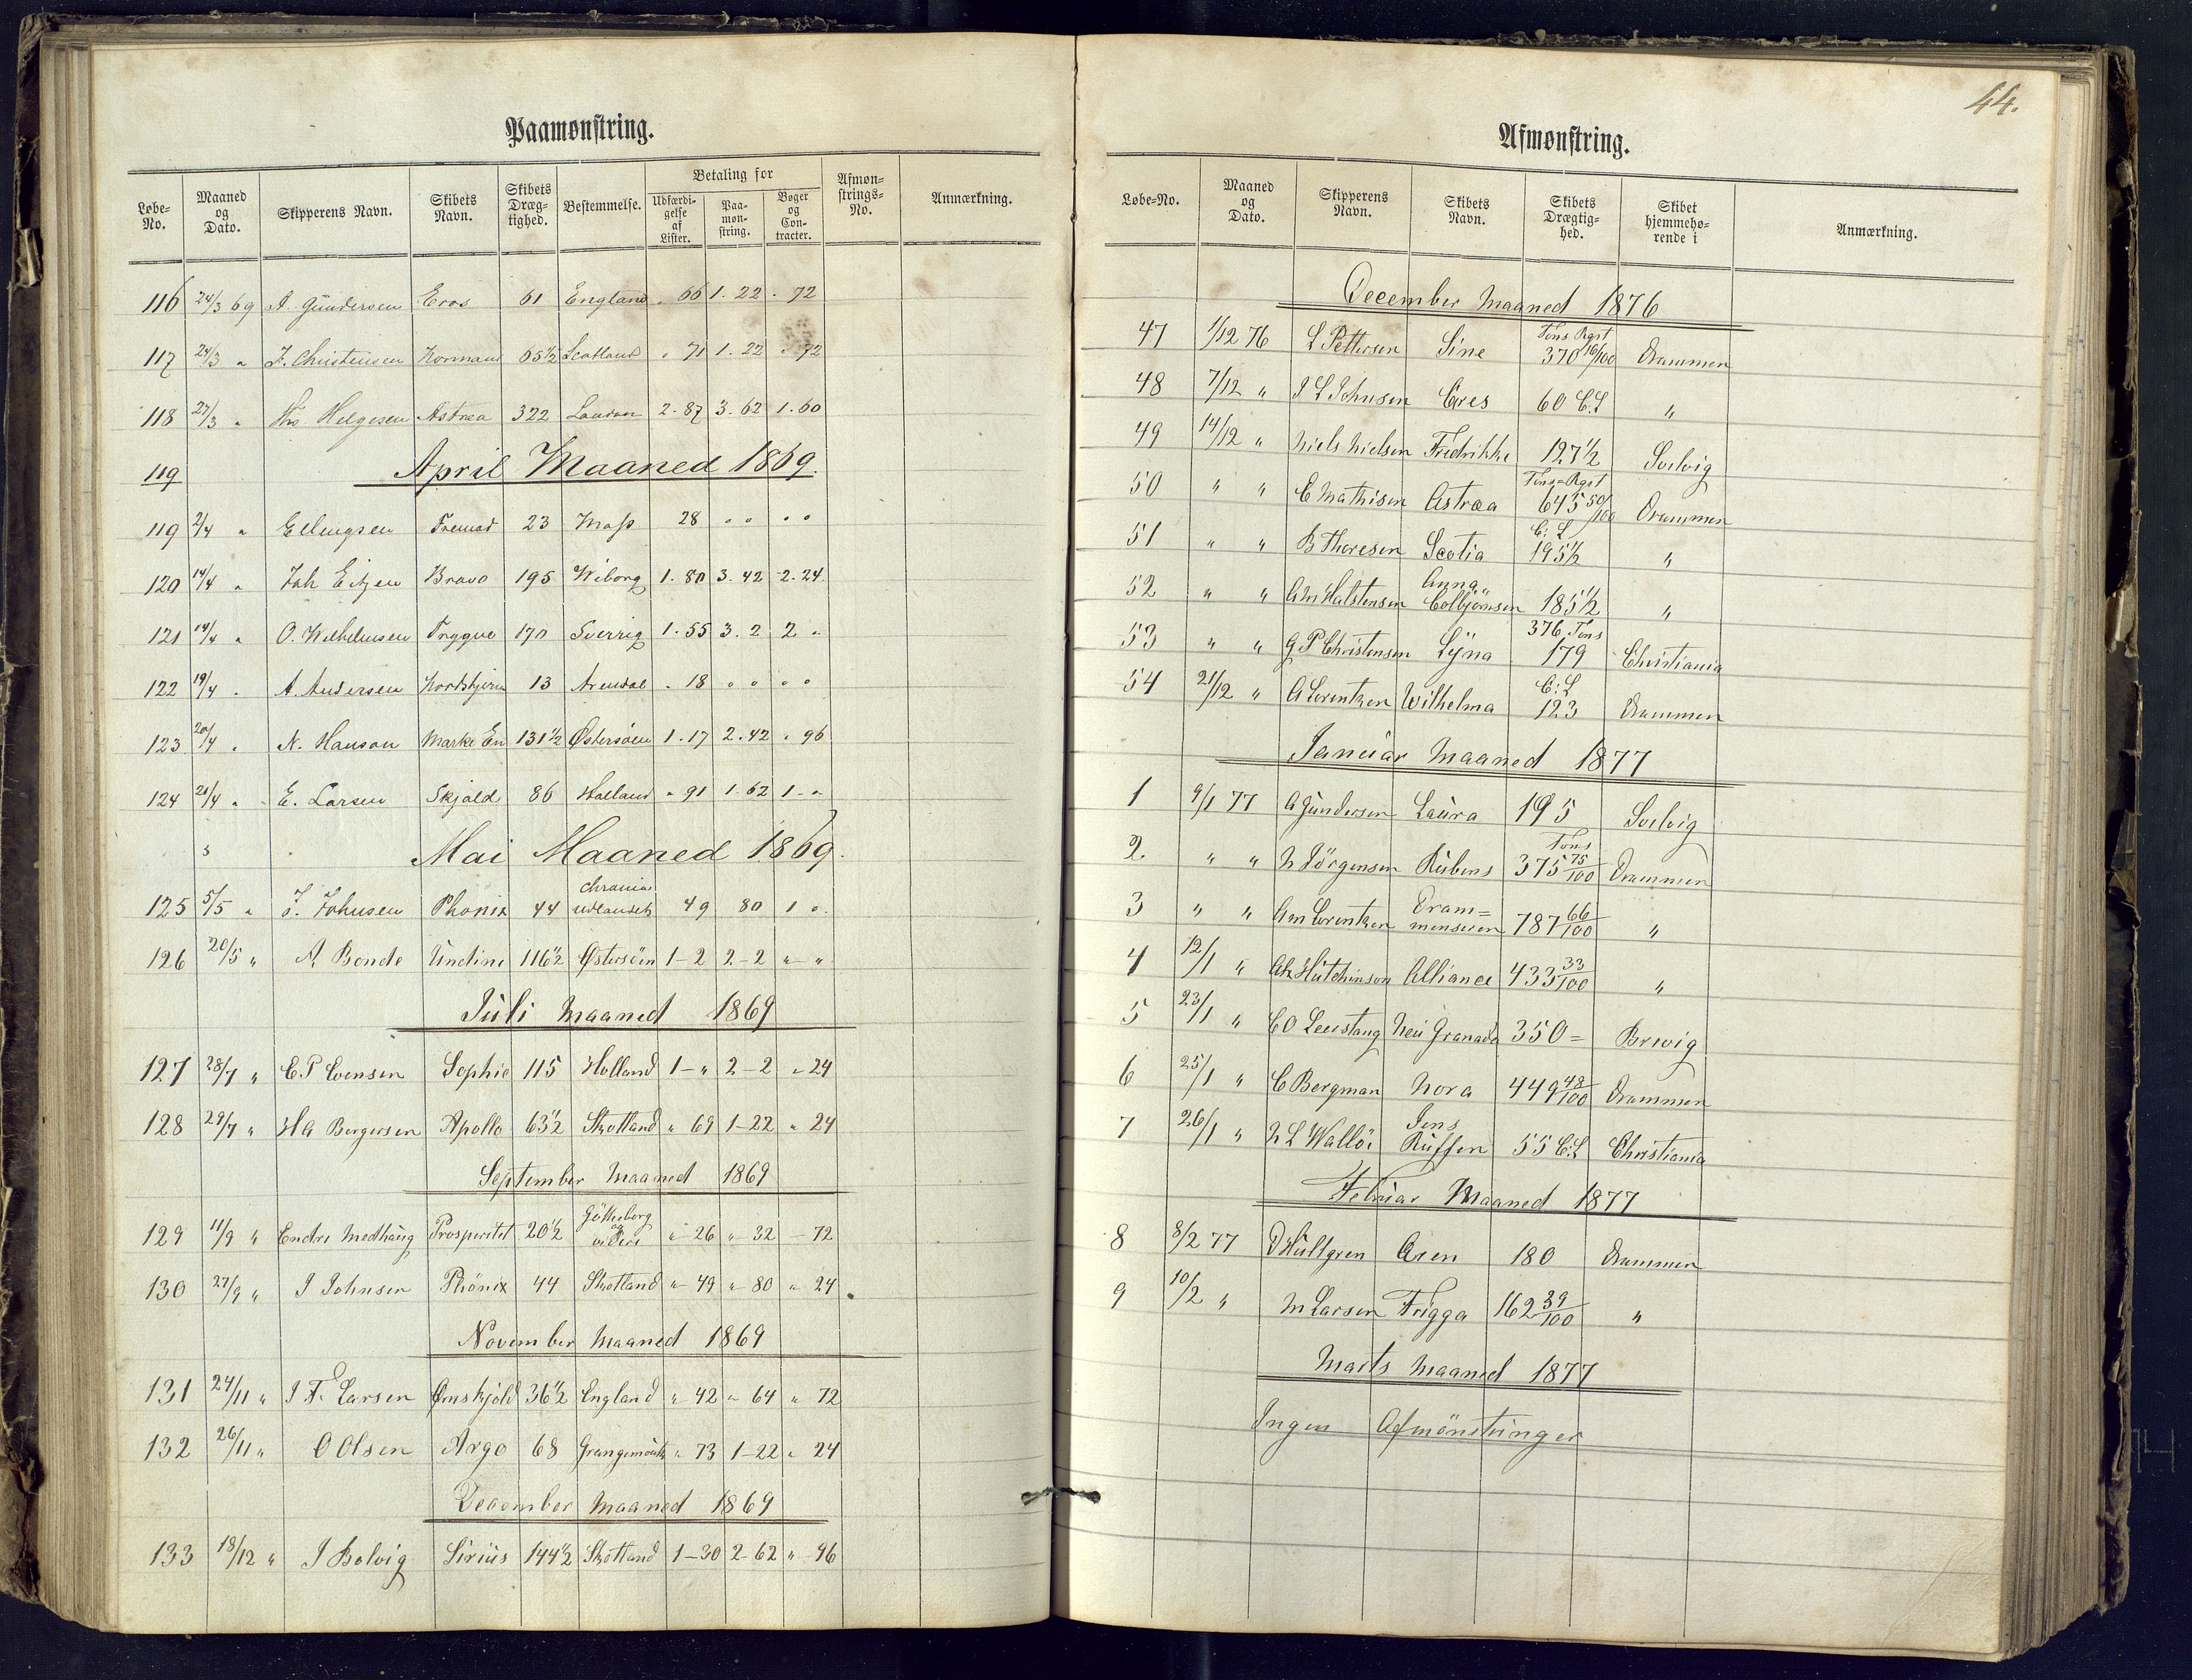 44.
Paamønstring.
Løbe-No. | Maaned og Dato. | Skipperens Navn. | Skibets Navn. | Skibets Dræg-tighed. | Bestemmelse. | Betaling for | Udfærdi-gelse af Lister. | Paa-møn-string. | Bøger og Con-tracter. | Afmøn-strings-No. | Anmærkning.
116 24/3 69 A. Gundersen Eros 61 England " 66 1. 22 " 72
117 24/3 " J. Christensen 65 1/2 Scotland " 71 1. 22 " 72
118 27/3 " Ths Helgesen Astræa 322 London 2. 87 3. 62 1. 60
119 April Maaned 1869.
119 2/4 " Ellingsen Fremad 23 Moss 28 " " " "
120 14/4 " Joh Eitzen Bravo 195 Wiborg 1. 80 3. 42 2. 24
121 14/4 " O. Wilhelmsen Trygve 170 Sverrig 1. 55 3. 2 2 "
122 19/4 " A. Andersen Nordstjern 13 Arendal " 18 " " " "
123 20/4 " N. Hanson Marke En 131 1/2 Østersøen 1. 17 2. 42 " 96
124 21/4 " E. Larsen Skjold 86 Holland " 91 1. 62 1 - "
Mai Maaned 1869.
125 5/5 " J. Johnsen Phønix 44 Chrania udlandet 49 80 1 "
126 20/5 " A. Bonde Undine 116 1/2 Østersöen 1-2 2-2 " - "
Juli Maaned 1869
127 28/7 " E P Evensen Sophie 115 Holland 1 - " 2 - 2 " 24
128 29/7 " H A Borgersen Apollo 63 1/2 Skotland " 69 1-22 " 24
September Maaned 1869
129 11/9 " Endre Medhaug Prosperitet 20 1/2 Götheborg og videre " 26 " 32 - 72
130 27/9 " J Johnsen Phönix 44 Skotland " 49 " 80 " 24
November Maaned 1869
131 24/11 " J F. Larsen Ørnskjold 36 1/2 England " 42 " 64 " 72
132 26/11 " O Olsen Argo 68 Grangemouth " 73 1-22 " 24
December Maaned 1869
133 18/12 " J Bolvig Sirius 144 1/2 Skotland 1-30 2-62 " 96
Afmønstring.
Løbe-No. | Maaned og Dato. | Skipperens Navn. | Skibets Navn. | Skibets Drægtig-hed. | Skibet hjemmehø-rende i | Anmærkning.
December Maaned 1876
47 1/12 76 L Pettersen Sine Tons Rgst 370 16/100 Drammen
48 7/12 " J L Johnsen Ceres 60 C.L "
49 14/12 " Niels Nielsen Fredrikke 127 1/2 Svelvig
50 " " C Mathisen Astræa Tons Rgst 645 50/100 Drammen
51 " " B Thoresen Scotia C: L 195 1/2 "
52 " " A M Halstensen Anna Colbjørnsen 185 1/2 "
53 " " G P Christensen Lÿna 376 Tons 179 Christiania
54 21/12 " A Lorentzen Wilhelma C: L 123 Drammen
Januar Maaned 1877
1 9/1 77 A Gundersen Laura 195 Svelvig
2 " " N Jörgensen Rubens Tons 375 75/100 Drammen
3 " " A M Lorentzen Dram=menseren 787 66/100 "
4 12/1 " Hutchinson Alliance 433 33/100 "
5 23/1 " C O Neu Granada 350 = Brevig
6 25/1 " C Bergman Nora 449 48/100 Drammen
7 26/1 " N L Wallöe Jens 55 C:L Christiania
Februar Maaned 1877
8 8/2 77 D Hultgren 180 Drammen
9 10/2 " M Larsen Frigga 162 39/100 "
Marts Maaned 1877
Ingen Afmönstringer